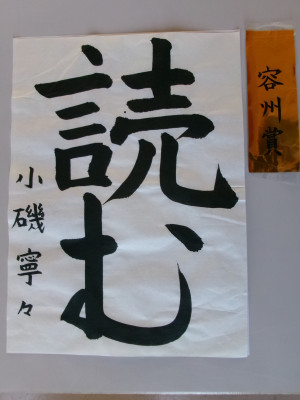 容州賞
読む
小磯寧々